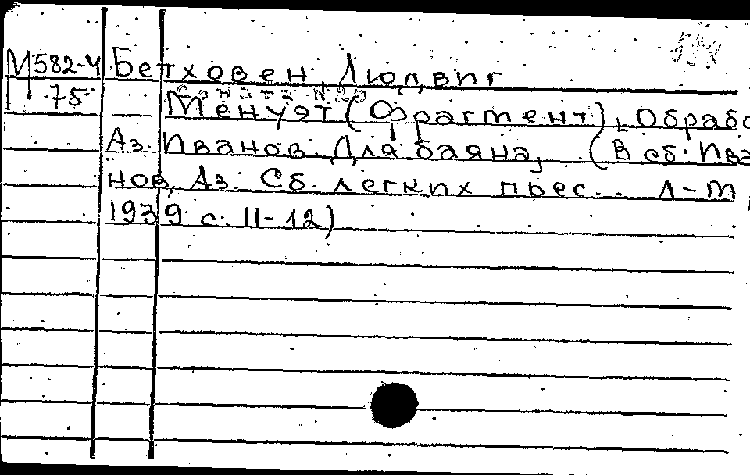 М582-4 Бетховен, Людвиг
75 Соната N20
Менуэт (Фрагмент), Обрабо
Аз. Иванов. Для баяна, (В сб. Ива
нов, Аз. Сб. легких пьес... Л-М,
1939 с. 11-12)